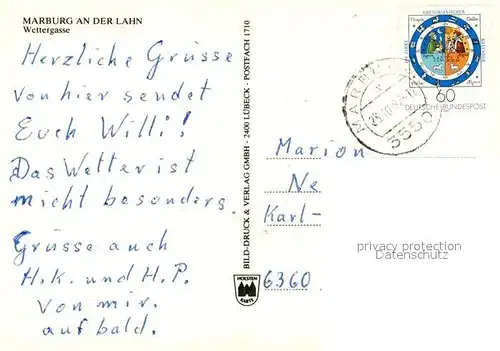 MARBURG AN DER LAHN
Wettergasse
Herzliche Grüsse
von hier sendet
Euch Willi!
Das Wetter ist
nicht besonders.
Grüsse auch
H.K. und H.P.
von mir.
auf bald.
BILD-DRUCK & VERLAG GMBH - 2400 LÜBECK - POSTFACH 1710
HOLSTEN
60
DEUTSCHE BUNDESPOST
MARBURG
3550
Marion
Ne
Karl-
6360
privacy protection
Datenschutz